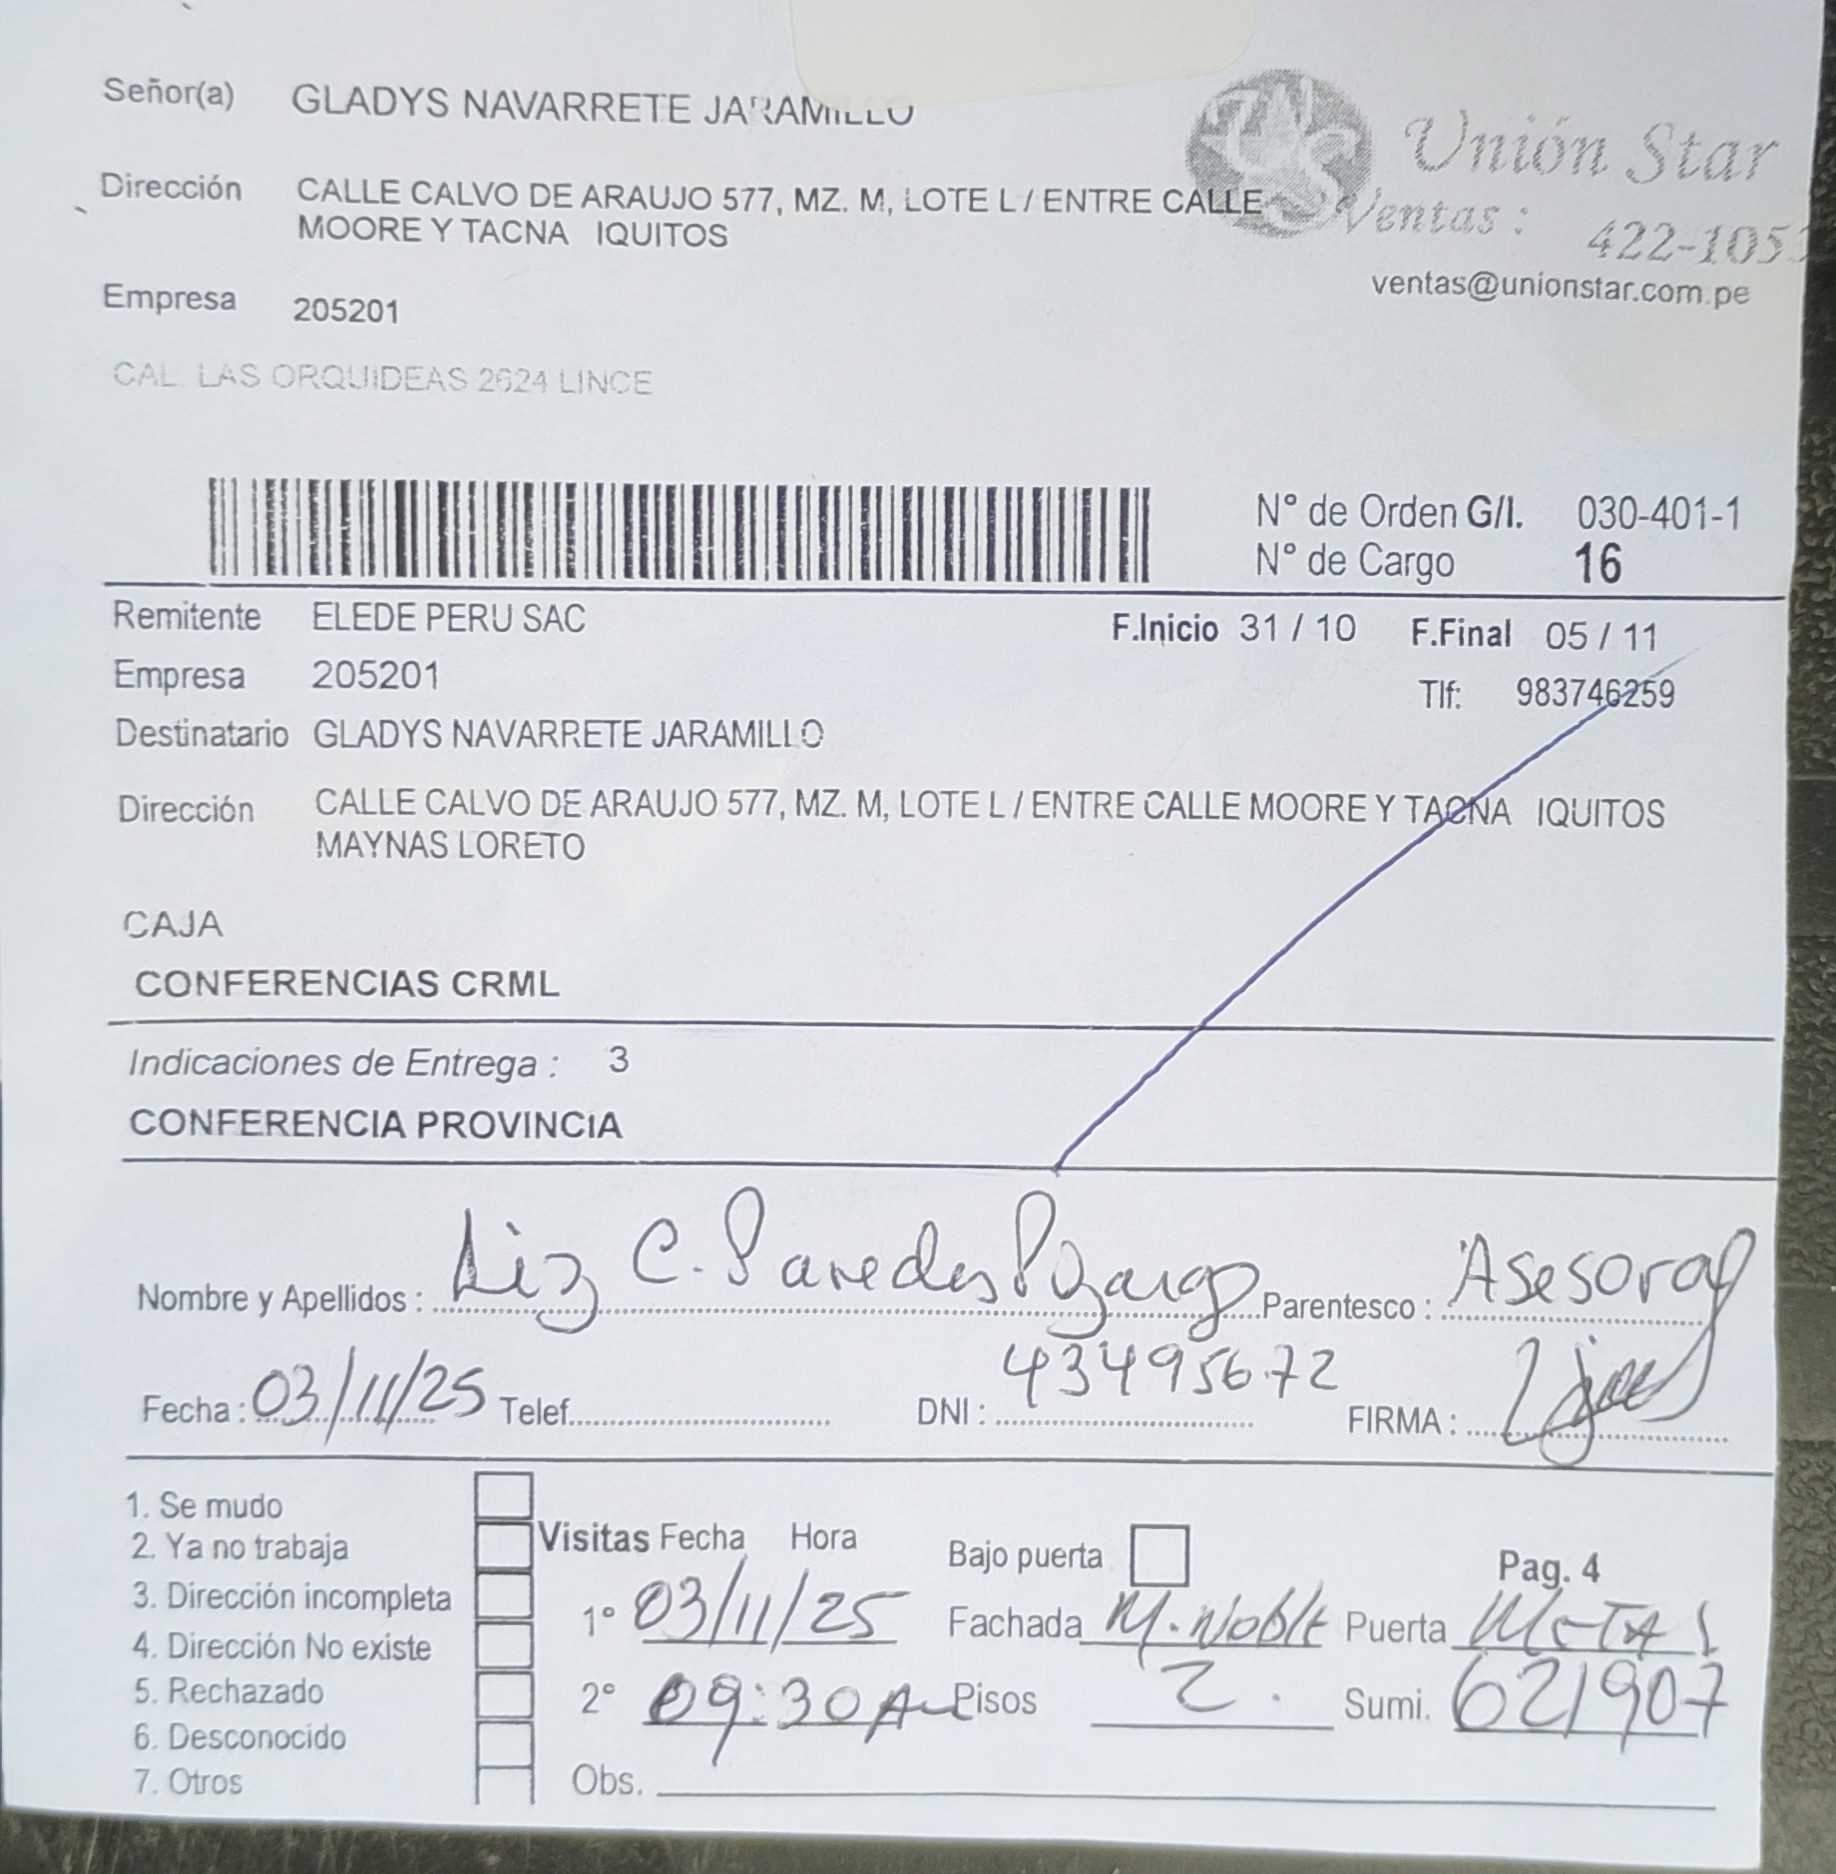 Señor(a) GLADYS NAVARRETE JARAMILLO
Unión Star
Dirección CALLE CALVO DE ARAUJO 577, MZ. M, LOTE L / ENTRE CALLE
MOORE Y TACNA IQUITOS
Ventas : 422-105
ventas@unionstar.com.pe
Empresa 205201
CAL. LAS ORQUIDEAS 2624 LINCE
N° de Orden G/I. 030-401-1
N° de Cargo 16
Remitente ELEDE PERU SAC F.Inicio 31 / 10 F.Final 05 / 11
Empresa 205201 Tlf: 983746259
Destinatario GLADYS NAVARRETE JARAMILLO
Dirección CALLE CALVO DE ARAUJO 577, MZ. M, LOTE L / ENTRE CALLE MOORE Y TACNA IQUITOS
MAYNAS LORETO
CAJA
CONFERENCIAS CRML
Indicaciones de Entrega : 3
CONFERENCIA PROVINCIA
Nombre y Apellidos : Liz C. Paredes Parentesco : Asesora
Fecha : 03/11/25 Telef. DNI : 43495672 FIRMA :
1. Se mudo
2. Ya no trabaja
3. Dirección incompleta
4. Dirección No existe
5. Rechazado
6. Desconocido
7. Otros
Visitas Fecha Hora Bajo puerta Pag. 4
1° 03/11/25 Fachada M. Noble Puerta Metal
2° 09:30 AM Pisos 2. Sumi. 621907
Obs.